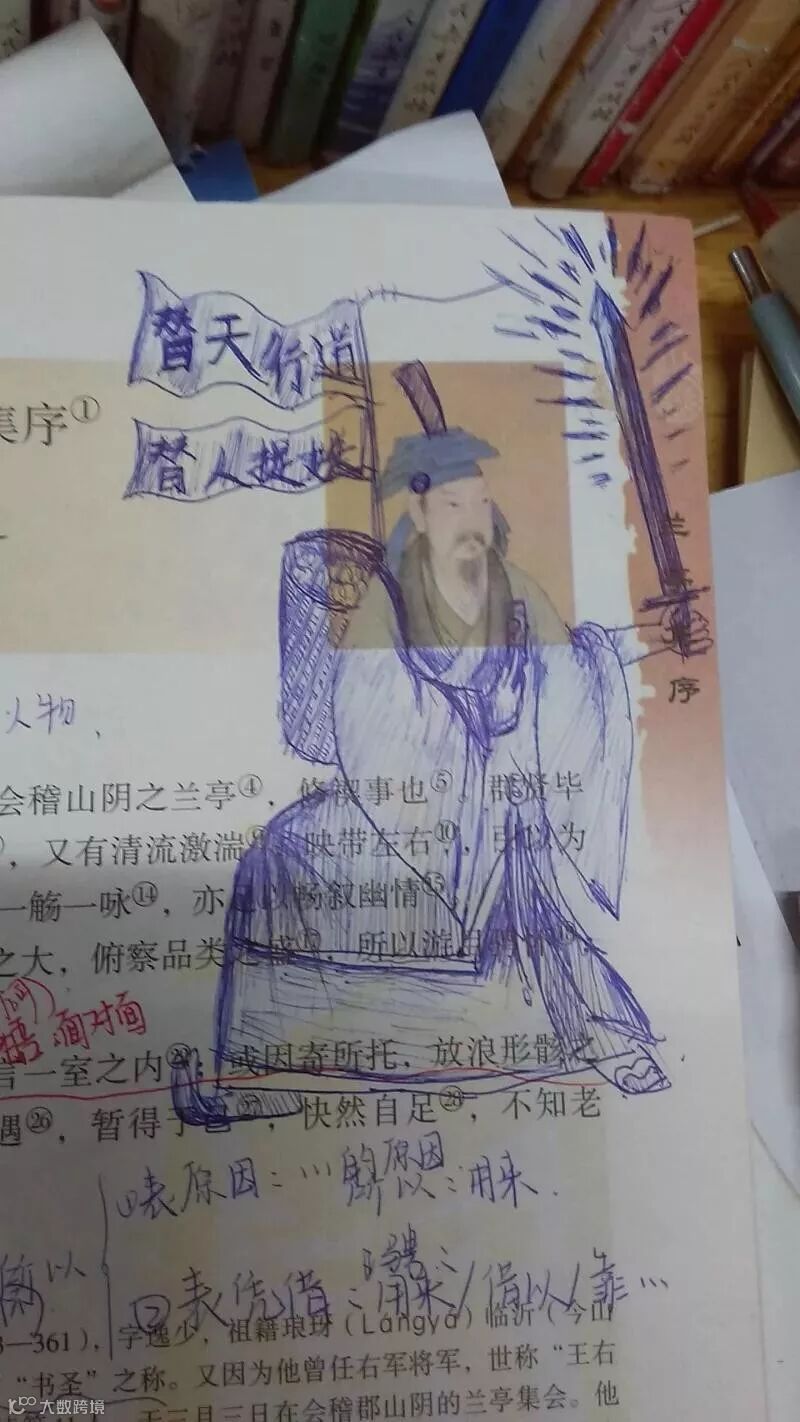 替天行道
替人捉妖
集序①
兰亭集序
人物、
会稽山阴之兰亭④，修禊事也⑤。群贤毕
，又有清流激湍，映带左右⑩，引以为
一觞一咏⑭，亦足以畅叙幽情⑮
之大，俯察品类之盛，所以游目骋怀
面对面
言一室之内；或因寄所托，放浪形骸之
遇㉖，暂得于己㉗，快然自足㉘，不知老
①表原因：…的原因
所以：用来.
骋：
所以
②表凭借：用来/借以/靠…
3—361），字逸少，祖籍琅琊（Lángyá）临沂（今山
“书圣”之称。又因为他曾任右军将军，世称“王右
于三月三日在会稽郡山阴的兰亭集会。他
大数跨境